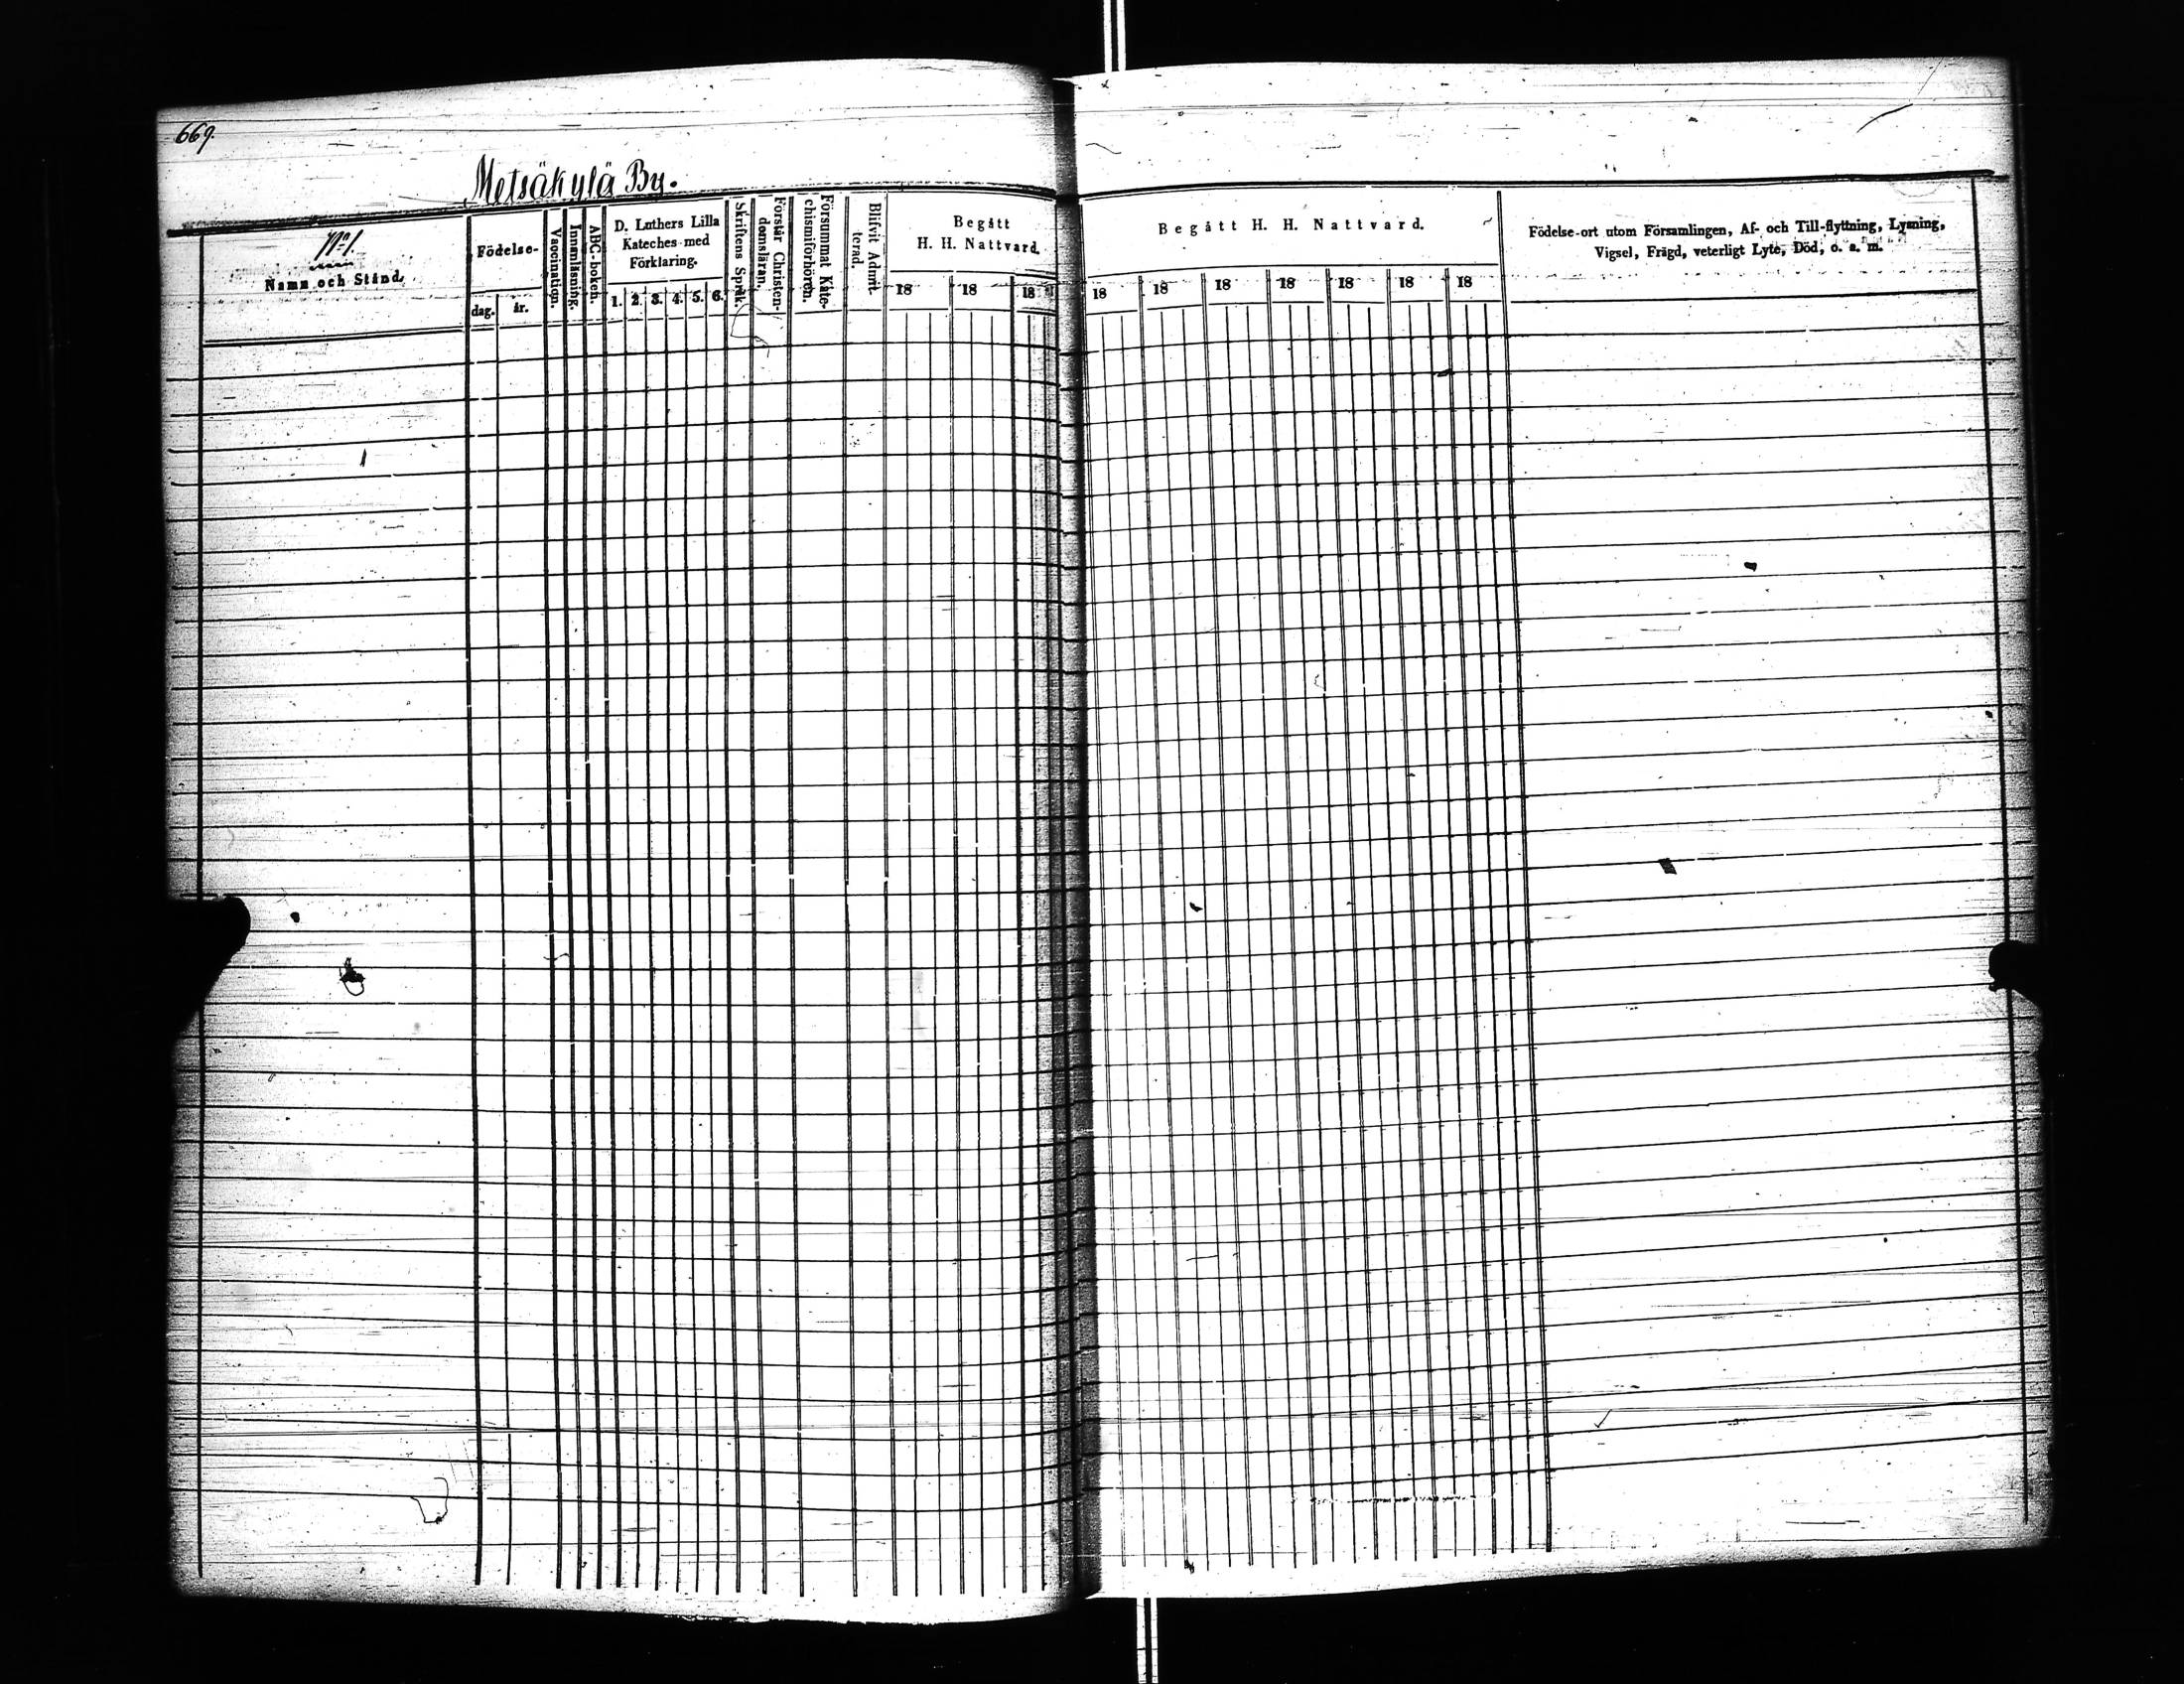 669.
Metsäkylä By.
No 1.
Namn och Stånd.
Födelse-
dag.
år.
Vaccination.
Innanläsning.
ABC-boken.
D. Luthers Lilla
Kateches med
Förklaring.
1. 2. 3. 4. 5. 6.
Skriftens Språk.
Förstår Christen-
domsläran.
Försummat Kate-
chismiförhören.
Blifvit Admit-
terad.
Begått
H. H. Nattvard.
18 18 18
Begått H. H. Nattvard.
18 18 18 18 18 18 18
Födelse-ort utom Församlingen, Af- och Till-flyttning, Lysning,
Vigsel, Frägd, veterligt Lyte, Död, o. s. m.